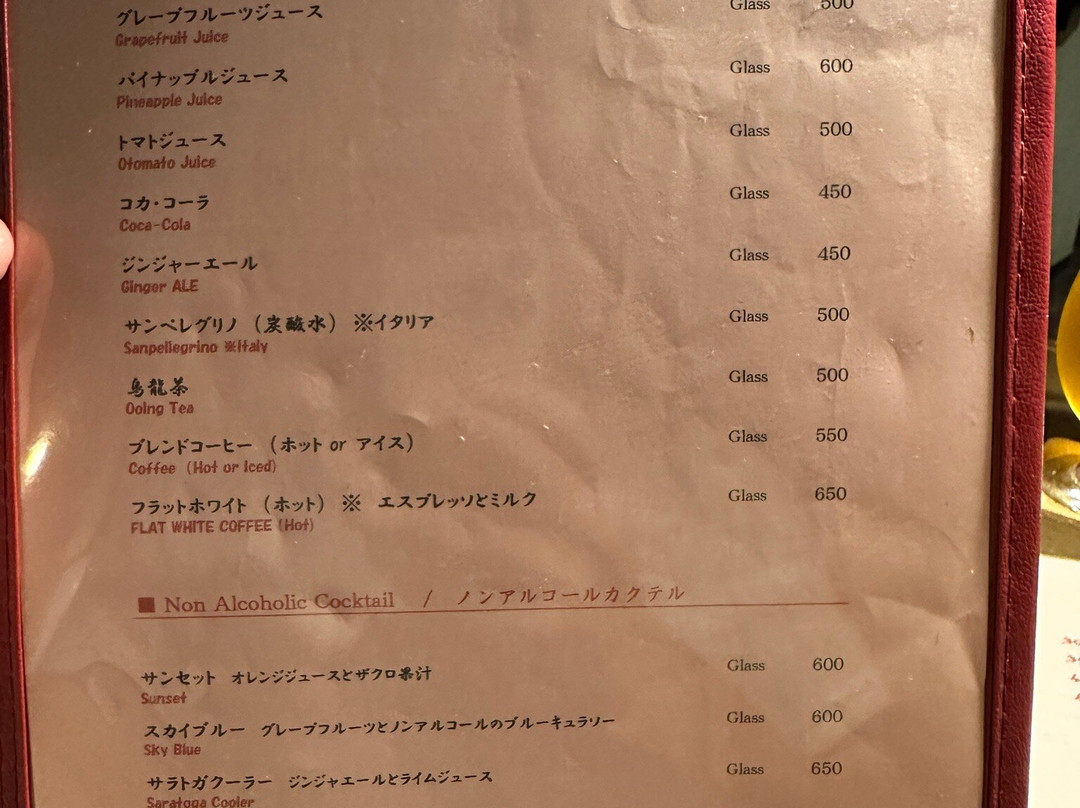 グレープフルーツジュース Glass 500
Grapefruit Juice
パイナップルジュース Glass 600
Pineapple Juice
トマトジュース Glass 500
Otomato Juice
コカ・コーラ Glass 450
Coca-Cola
ジンジャーエール Glass 450
Ginger ALE
サンペレグリノ（炭酸水）※イタリア Glass 500
Sanpellegrino ※Italy
烏龍茶 Glass 500
Oolng Tea
ブレンドコーヒー（ホット or アイス） Glass 550
Coffee (Hot or Iced)
フラットホワイト（ホット）※ エスプレッソとミルク Glass 650
FLAT WHITE COFFEE (Hot)
■ Non Alcoholic Cocktail / ノンアルコールカクテル
サンセット オレンジジュースとザクロ果汁 Glass 600
Sunset
スカイブルー グレープフルーツとノンアルコールのブルーキュラソー Glass 600
Sky Blue
サラトガクーラー ジンジャエールとライムジュース Glass 650
Saratoga Cooler